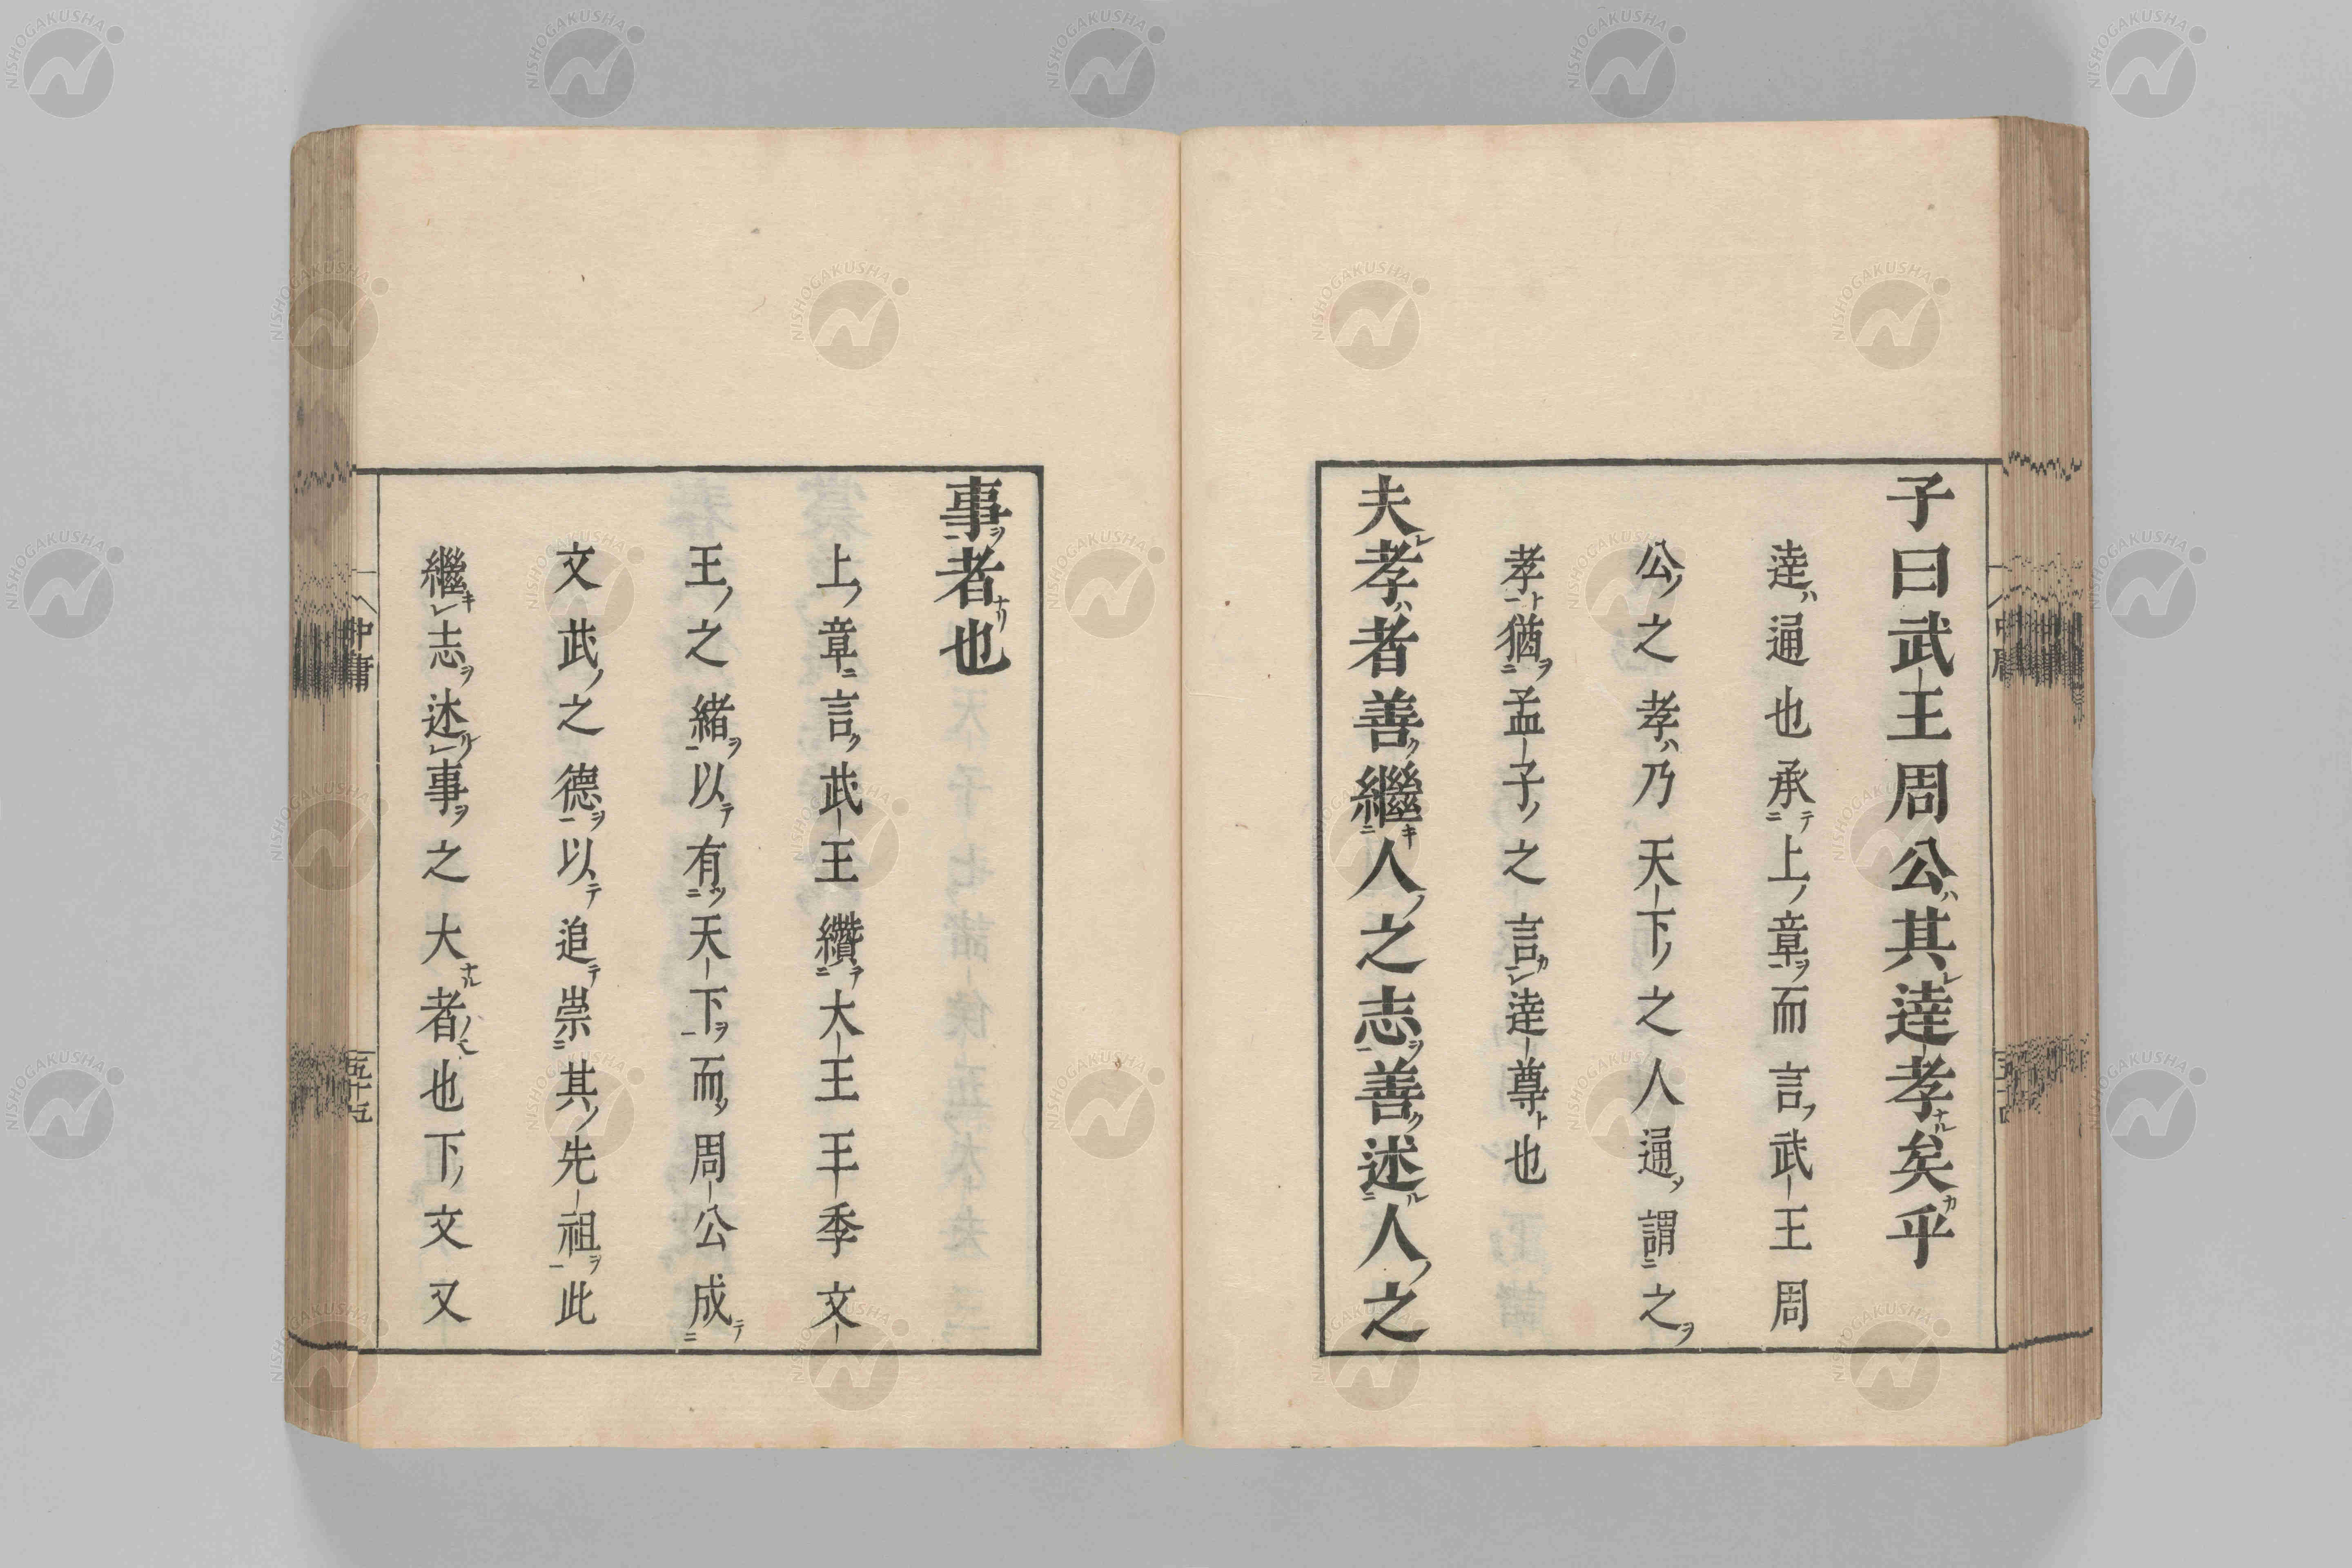 子曰武王周公其達孝矣乎
達通也承上章而言武王周
公之孝乃天下之人通謂之
孝猶孟子之言達尊也
夫孝者善繼人之志善述人之
事者也
上章言武王纘大王王季文
王之緒以有天下而周公成
文武之德以追崇其先祖此
繼志述事之大者也下文又
中庸
五十五